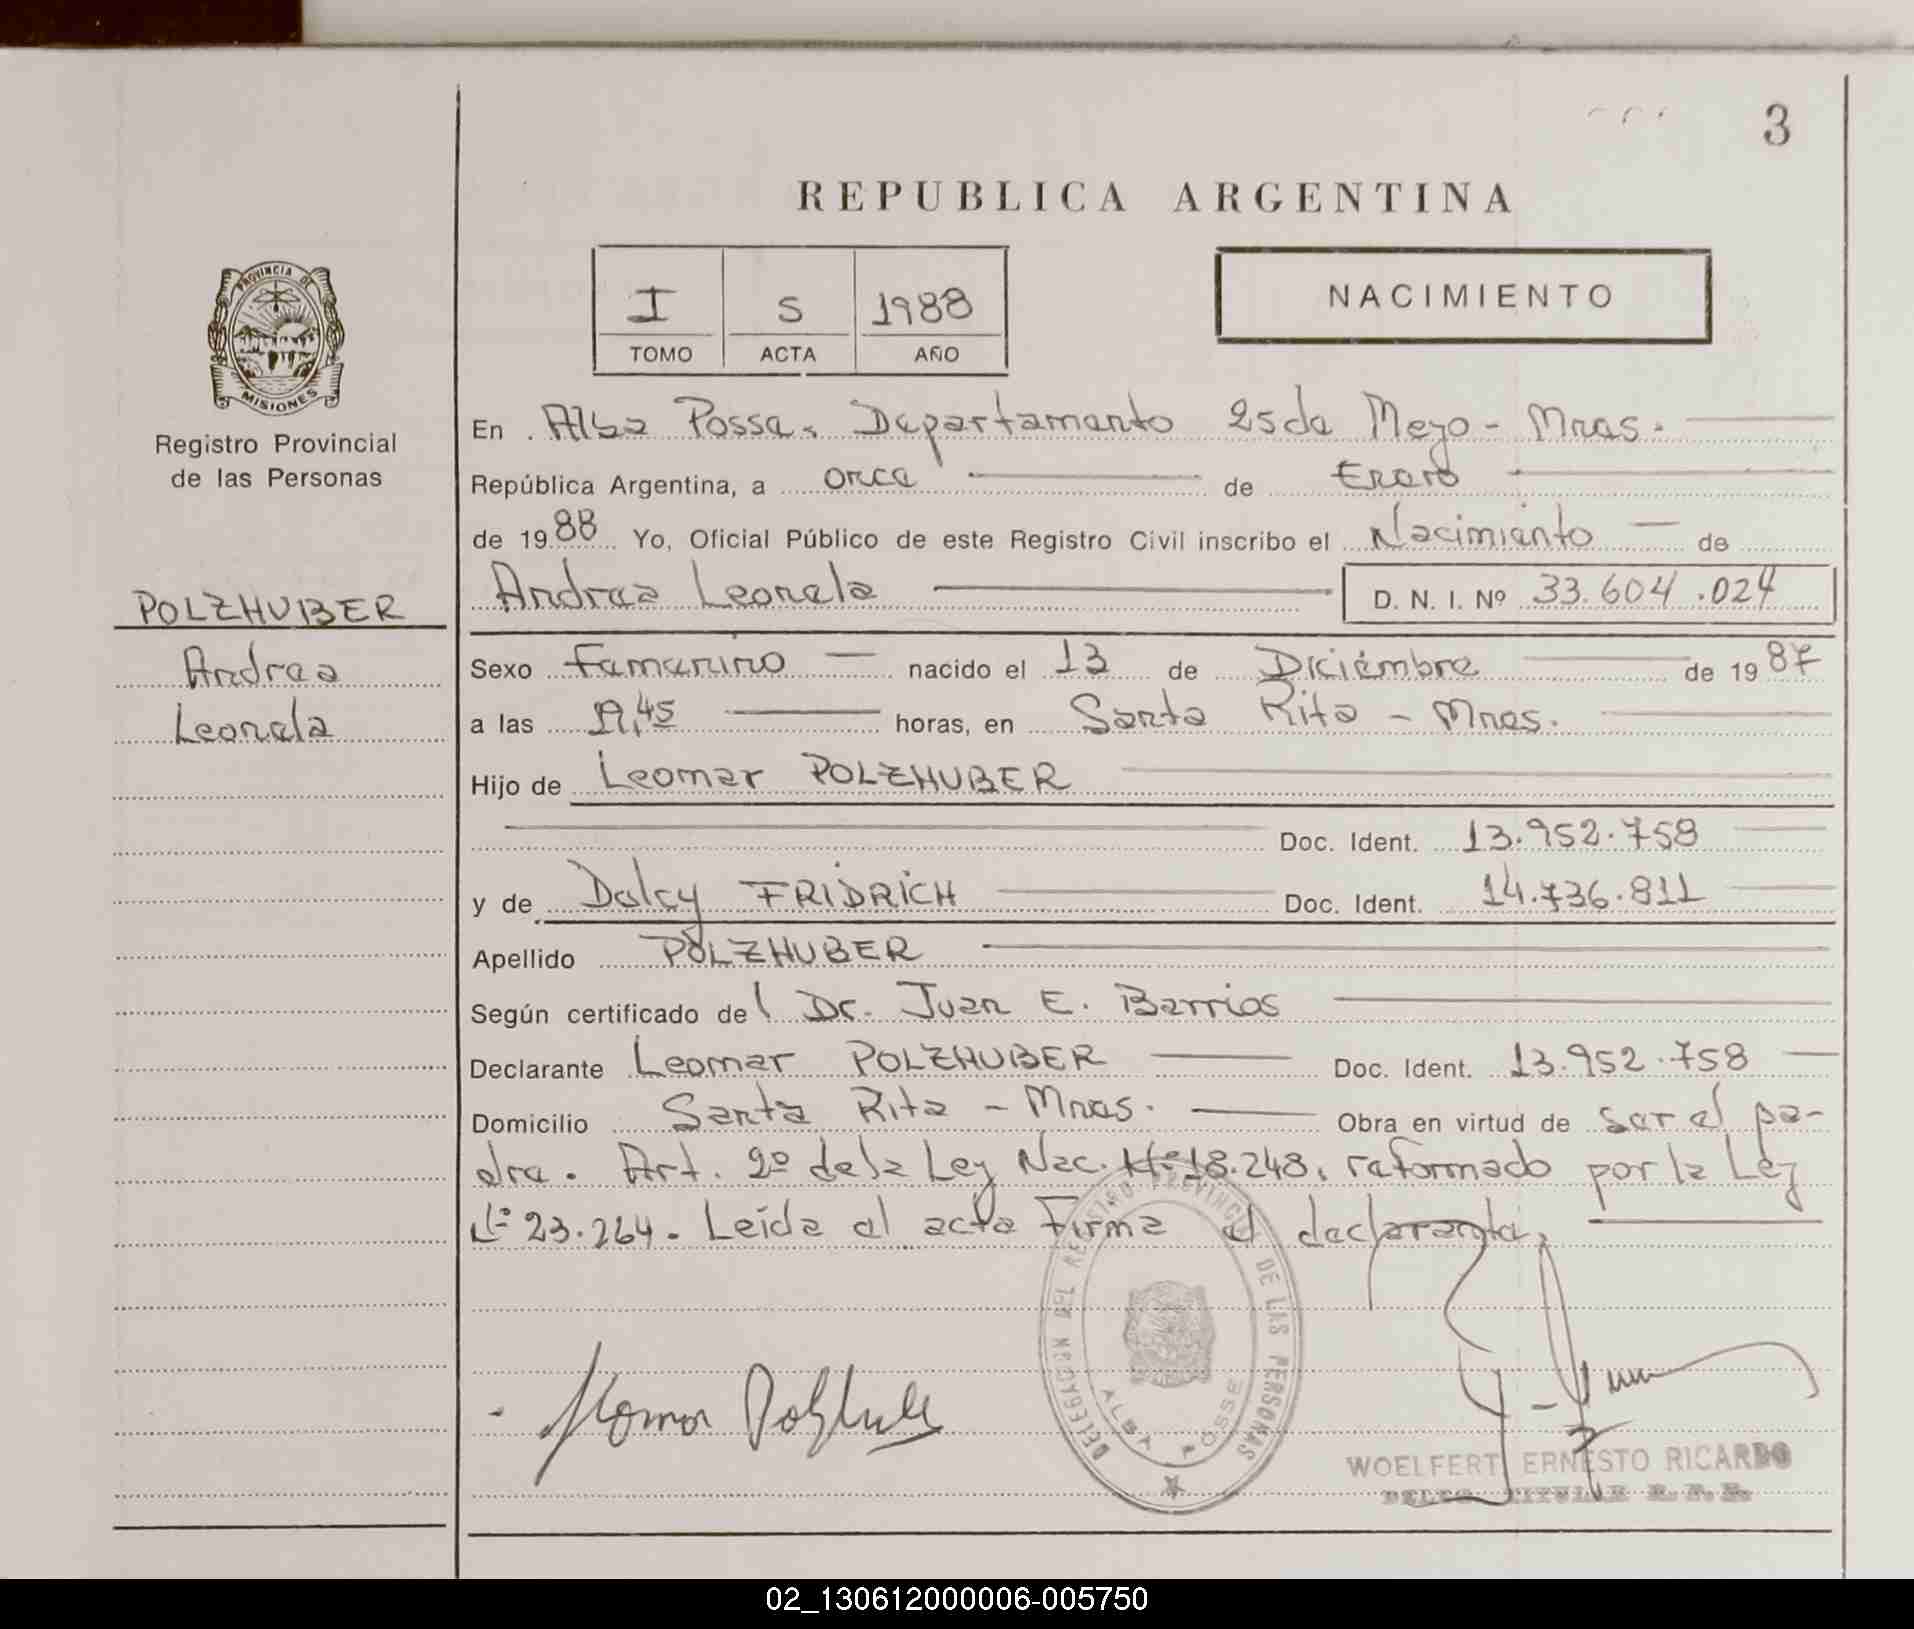 3
REPUBLICA ARGENTINA
PROVINCIA DE
MISIONES
Registro Provincial
de las Personas
I 5 1988
TOMO ACTA AÑO
NACIMIENTO
POLZHUBER
Andrea
Leonela
En Alba Posse, Departamento 25 de Mayo - Mnes.
República Argentina, a once de Enero
de 1988 Yo, Oficial Público de este Registro Civil inscribo el Nacimiento de
Andrea Leonela D. N. I. Nº 33.604.024
Sexo Femenino nacido el 13 de Diciembre de 1987
a las 19,45 horas, en Santa Rita - Mnes.
Hijo de Leomar POLZHUBER
Doc. Ident. 13.952.758
y de Dalcy FRIDRICH Doc. Ident. 14.736.811
Apellido POLZHUBER
Según certificado del Dr. Juan E. Barrios
Declarante Leomar POLZHUBER Doc. Ident. 13.952.758
Domicilio Santa Rita - Mnes. Obra en virtud de ser el pa-
dre. Art. 2º de la Ley Nac. Nº 18.248, reformado por la Ley
Nº 23.264. Leída el acta Firma el declarante,
DELEGACION DEL REGISTRO PROVINCIAL DE LAS PERSONAS
ALBA POSSE
Leomar Polzhube
WOELFERT ERNESTO RICARDO
TITULAR R. P. P.
02_130612000006-005750